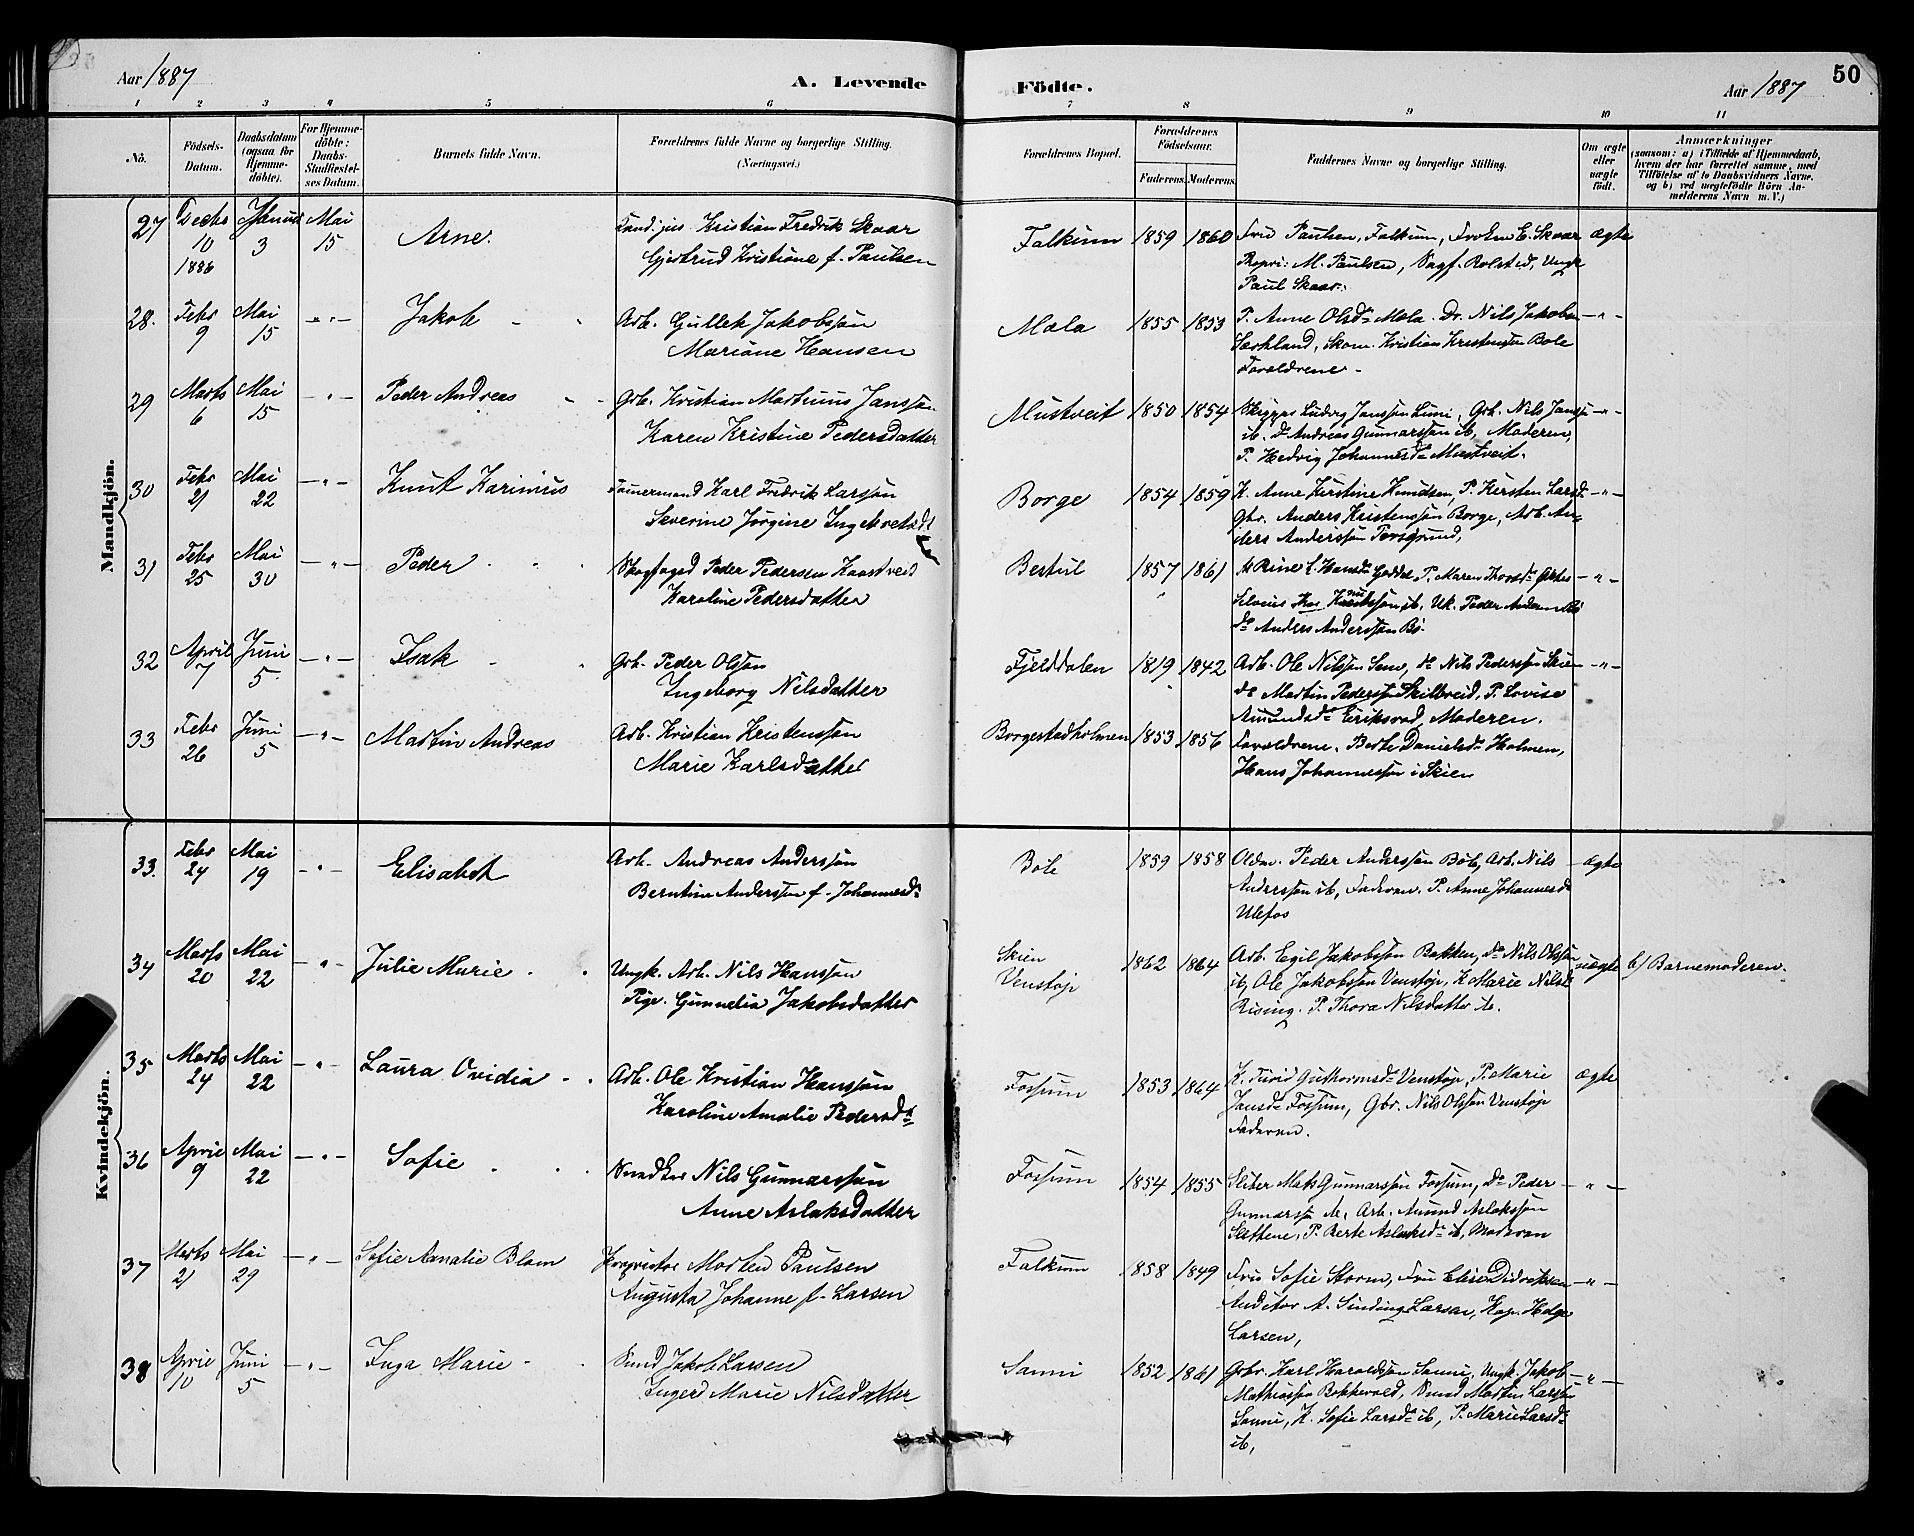 Aar 1887
A. Levende
Födte.
Aar 1887
50
1 2 3 4 5 6 7 8 9 10 11
No.
Födsels-
Datum.
Daabsdatum
(ogsaa for
Hjemme-
döbte).
For Hjemme-
döbte:
Daabs-
Stadfæstel-
ses Datum.
Barnets fulde Navn.
Forældrenes fulde Navne og borgerlige Stilling.
(Næringsvei.)
Forældrenes Bopæl.
Forældrenes
Födselsaar.
Faderens. Moderens.
Faddernes Navne og borgerlige Stilling.
Om ægte
eller
uægte
födt.
Anmærkninger
(saasom: a) i Tilfælde af Hjemmedaab,
hvem der har forrettet samme, med
Tilföielse af to Daabsvidners Navne.
og b) ved uægtefödte Börn An-
melderens Navn m. V.)
Mandkjön.
27 Decbr 10 1886 Januar 3 Mai 15 Arne.
Cand. jus. Kristian Fredrik Skaar
Gjertrud Kristiane f. Paulsen
Falkum 1859 1860
Fru Paulsen, Falkum, Frøken E. Skaar
Propri: M. Paulsen, Sagf. Rolsted, Ungk
Paul Skaar.
ægte
28. Febr 9 Mai 15 — " — Jakob
Arb. Gullek Jakobssøn
Mariane Hansen
Mæla 1855 1853
P. Anne Olsdr Mæla. Dr. Nils Jakobsen
Særkland, Skom. Kristian Kristenssøn Bøle
Forældrene.
— " —
29 Marts 6 Mai 15 — " — Peder Andreas
Grb. Kristian Martinus Janssøn
Karen Kristine Pedersdatter
Mustveit 1850 1854
Skipper Ludvig Janssøn Lumi, Grb. Nils Janssøn
ib. do Andreas Gunnarssøn ib, Moderen,
P. Hedvig Johannesdr Mustveit.
— " —
30 Febr 21 Mai 22 — " — Knut Karinius
Tømermand Karl Fredrik Larssøn
Severine Jørgine Ingebretsdtr
Borge 1854 1859
K. Anne Kirstine Knudsen, P. Kirsten Larsdr
Gbr. Anders Kristenssøn Borge, Arb. An-
ders Anderssøn Porsgrund,
— " —
31 Febr 25 Mai 30 — " — Peder
Skogfoged Peder Pedersen Kaastveid
Karoline Pedersdatter
Bestul 1857 1861
do Anders Anderssøn Bø.
— " —
32 April 7 Juni 5 — " — Isak
Grb. Peder Olssøn
Ingeborg Nilsdatter
Fjelddalen 1819 1842
Arb. Ole Nilssøn Sem, do Nils Pederssøn Skien
do Martin Pederssøn Skilbreid, P. Lovise
Amundsdr Eriksrød, Moderen.
— " —
33 Febr 26 Juni 5 — " — Martin Andreas
Arb. Kristian Kristenssøn
Marie Karlsdatter
Borgestadholmen 1853 1856
Forældrene. Berte Danielsdr Holmen,
Hans Johannessøn i Skien
Kvindekjön.
33. Febr 24 Mai 19 — " — Elisabet
Arb. Andreas Anderssøn
Berntine Anderssøn f. Johannesdr
Bøle 1859 1858
Oldm. Peder Anderssøn Bøle, Arb. Nils
Anderssøn ib, Faderen. P. Anne Johannesdr
Ulefos
ægte
34 Marts 20 Mai 22 — " — Julie Marie
Ungk. Arb. Nils Hanssøn
Pige. Gunnelia Jakobsdatter
Skien
Venstøp
1862 1864
Arb. Egil Jakobssøn Bakken, do Nils Olssøn
ib, Ole Jakobssøn Venstøp, K. Marie Nilsdr
Rising. P. Thora Nilsdatter ib.
uægte
b) Barnemoderen.
35 Marts 24 Mai 22 — " — Laura Ovidia
Arb. Ole Kristian Hanssøn
Karoline Amalie Pedersdr
Fossum 1853 1864
K. Turid Guthormsdr Venstøp, P. Marie
Jansdr Fossum, Gbr. Nils Olssøn Venstøp
Faderen.
ægte
36 April 9 Mai 22 — " — Sofie
Snedker Nils Gunnarssøn
Anne Aslaksdatter
Fossum 1854 1855
Sliber Mats Gunnarssøn Fossum, do Peder
Gunnarssøn ib, Arb. Amund Aslakssøn
Slettene, P. Berte Aslaksdr ib, Moderen
— " —
37 Marts 21 Mai 29 — " — Sofie Amalie Blom
Proprietær Morten Paulsen
Augusta Johanne f. Larsen
Falkum 1858 1849
Fru Sofie Storm, Fru Elise Didriksen
Auditør A. Sinding Larsen, Kap. Helge
Larsen,
— " —
38 April 10 Juni 5 — " — Inga Marie
Smed Jakob Larsen
Ingerd Marie Nilsdatter
Sanni 1852 1861
Grbr. Karl Haraldssøn Sanni, Ungk. Jakob
Mathiassøn Bakkevold, Smed Martin Larssøn
Sanni, K. Sofie Larsdr ib, P. Marie Larsdr
ib,
— " —